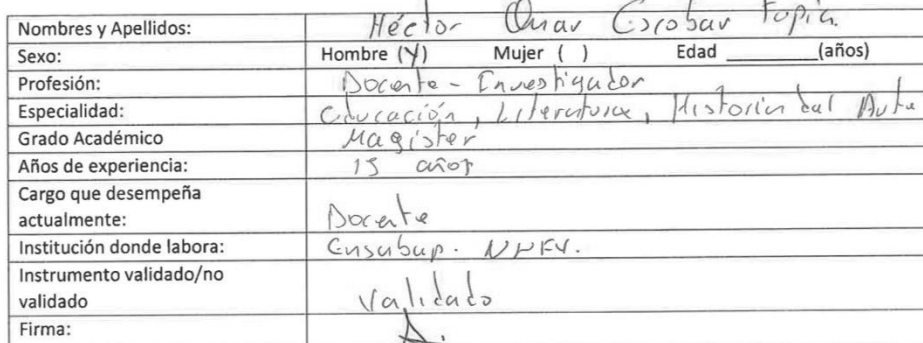 Nombres y Apellidos: Héctor Omar Escobar Tapia.
Sexo: Hombre (X) Mujer ( ) Edad ________(años)
Profesión: Docente - Investigador
Especialidad: Educación, Literatura, Historia del Arte
Grado Académico Magister
Años de experiencia: 15 años
Cargo que desempeña
actualmente: Docente
Institución donde labora:
Instrumento validado/no
validado Validado
Firma: